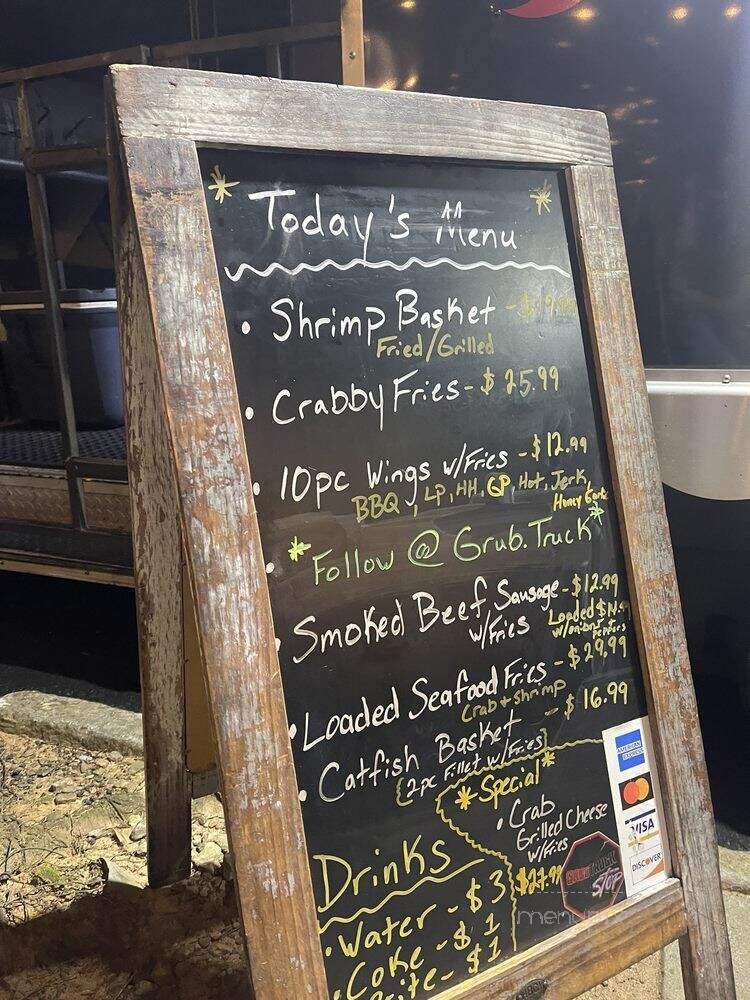 Today's Menu
• Shrimp Basket
Fried/Grilled
• Crabby Fries - $25.99
• 10pc Wings w/Fries - $12.99
BBQ, LP, HH, GP, Hot, Jerk,
Honey
• *Follow @ Grub.Truck*
• Smoked Beef Sausage - $12.99
w/Fries
Loaded
w/onions + Peppers
• Loaded Seafood Fries - $29.99
Crab + Shrimp
• Catfish Basket - $16.99
(2pc Fillet w/Fries)
*Special*
• Crab
Grilled Cheese
w/Fries
Drinks
• Water - $3
• Coke - $1
- $1
AMERICAN EXPRESS
VISA
DISCOVER
STOP